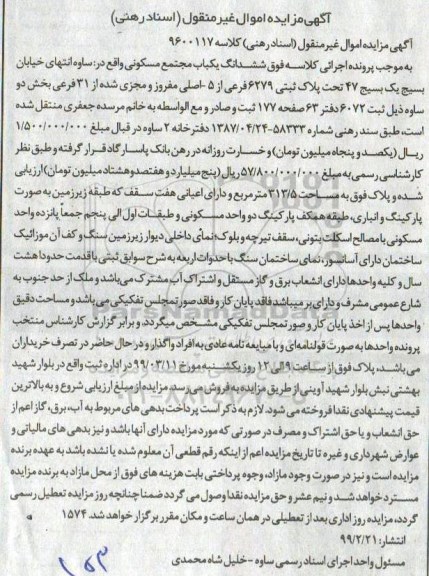 آگهی مزایده اموال غیر منقول (اسناد رهنی)
آگهی مزایده اموال غیر منقول (اسناد رهنی) کلاسه ۹۶۰۰۱۱۷
به موجب پرونده اجرائی کلاسه فوق ششدانگ یکباب مجتمع مسکونی واقع در: ساوه انتهای خیابان
بسیج یک بسیج ۴۷ تحت پلاک ثبتی ۶۲۷۹ فرعی از ۵ -اصلی مفروز و مجزی شده از ۳۱ فرعی بخش دو
ساوه ذیل ثبت ۶۰۷۲ دفتر ۶۳ صفحه ۱۷۷ ثبت و صادر و مع الواسطه به خانم مرسده جعفری منتقل شده
است، طبق سند رهنی شماره ۵۸۳۳۳-۱۳۸۷/۰۴/۲۴ دفترخانه ۲ ساوه در قبال مبلغ ۱/۵۰۰/۰۰۰/۰۰۰
ریال (یکصد و پنجاه میلیون تومان) و خسارت روزانه در رهن بانک پاسارگاد قرار گرفته و طبق نظر
کارشناسی رسمی به مبلغ ۵۷/۸۰۰/۰۰۰/۰۰۰ ریال (پنج میلیارد و هفتصد و هشتاد میلیون تومان) ارزیابی
شده و پلاک فوق به مساحت ۳۱۳/۵ متر مربع و دارای اعیانی هفت سقف که طبقه زیرزمین به صورت
پارکینگ و انباری، طبقه همکف پارکینگ دو واحد مسکونی و طبقات اول الی پنجم جمعاً پانزده واحد
مسکونی با مصالح اسکلت بتونی، سقف تیرچه و بلوک؛ نمای داخلی دیوار زیرزمین سنگ و کف آن موزائیک
ساختمان دارای آسانسور، نمای ساختمان سنگ با حدوات اربعه به شرح سوابق ثبتی با قدمت حدودا هشت
سال و کلیه واحدها دارای انشعاب برق و گاز مستقل و اشتراک آب مشترک می‌باشد و ملک از حد جنوب به
شارع عمومی مشرف و دارای بر میباشد فاقد پایان کار و فاقد صورتمجلس تفکیکی می باشد و مساحت دقیق
واحدها پس از اخذ پایان کار و صورتمجلس تفکیکی مشخص میگردد و برابر گزارش کارشناس منتخب
پرونده واحدها به صورت قولنامه ای و با مبایعه نامه عادی به افراد واگذار و در حال حاضر در تصرف خریداران
می باشد، پلاک فوق از ساعت ۹ الی ۱۲ روز یکشنبه مورخ ۹۹/۰۳/۱۱ در اداره ثبت واقع در بلوار شهید
بهشتی نبش بلوار شهید آوینی از طریق مزایده به فروش می رسد. مزایده از مبلغ ارزیابی شروع و به بالاترین
قیمت پیشنهادی نقدا فروخته می شود. لازم به ذکر است پرداخت بدهی های مربوط به آب، برق، گاز اعم از
حق انشعاب و یا حق اشتراک و مصرف در صورتی که مورد مزایده دارای آنها باشد و نیز بدهی های مالیاتی و
عوارض شهرداری و غیره تا تاریخ مزایده اعم از اینکه رقم قطعی آن معلوم شده یا نشده باشد به عهده برنده
مزایده است و نیز در صورت وجود مازاد، وجوه پرداختی بابت هزینه های فوق از محل مازاد به برنده مزایده
مسترد خواهد شد و نیم عشر و حق مزایده نقدا وصول می گردد ضمنا چنانچه روز مزایده تعطیل رسمی
گردد، مزایده روز اداری بعد از تعطیلی در همان ساعت و مکان مقرر برگزار خواهد شد. ۱۵۷۴
انتشار: ۹۹/۲/۲۱
مسئول واحد اجرای اسناد رسمی ساوه - خلیل شاه محمدی